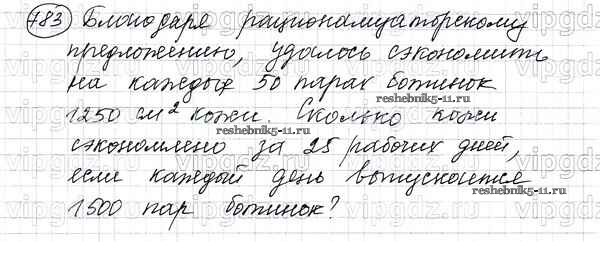 783 Благодаря рационализаторскому
предложению, удалось сэкономить
на каждых 50 парах ботинок
1250 см² кожи. Сколько кожи
сэкономлено за 25 рабочих дней,
если каждый день выпускается
1500 пар ботинок?
reshebnik5-11.ru
reshebnik5-11.ru
reshebnik5-11.ru
vipgdz